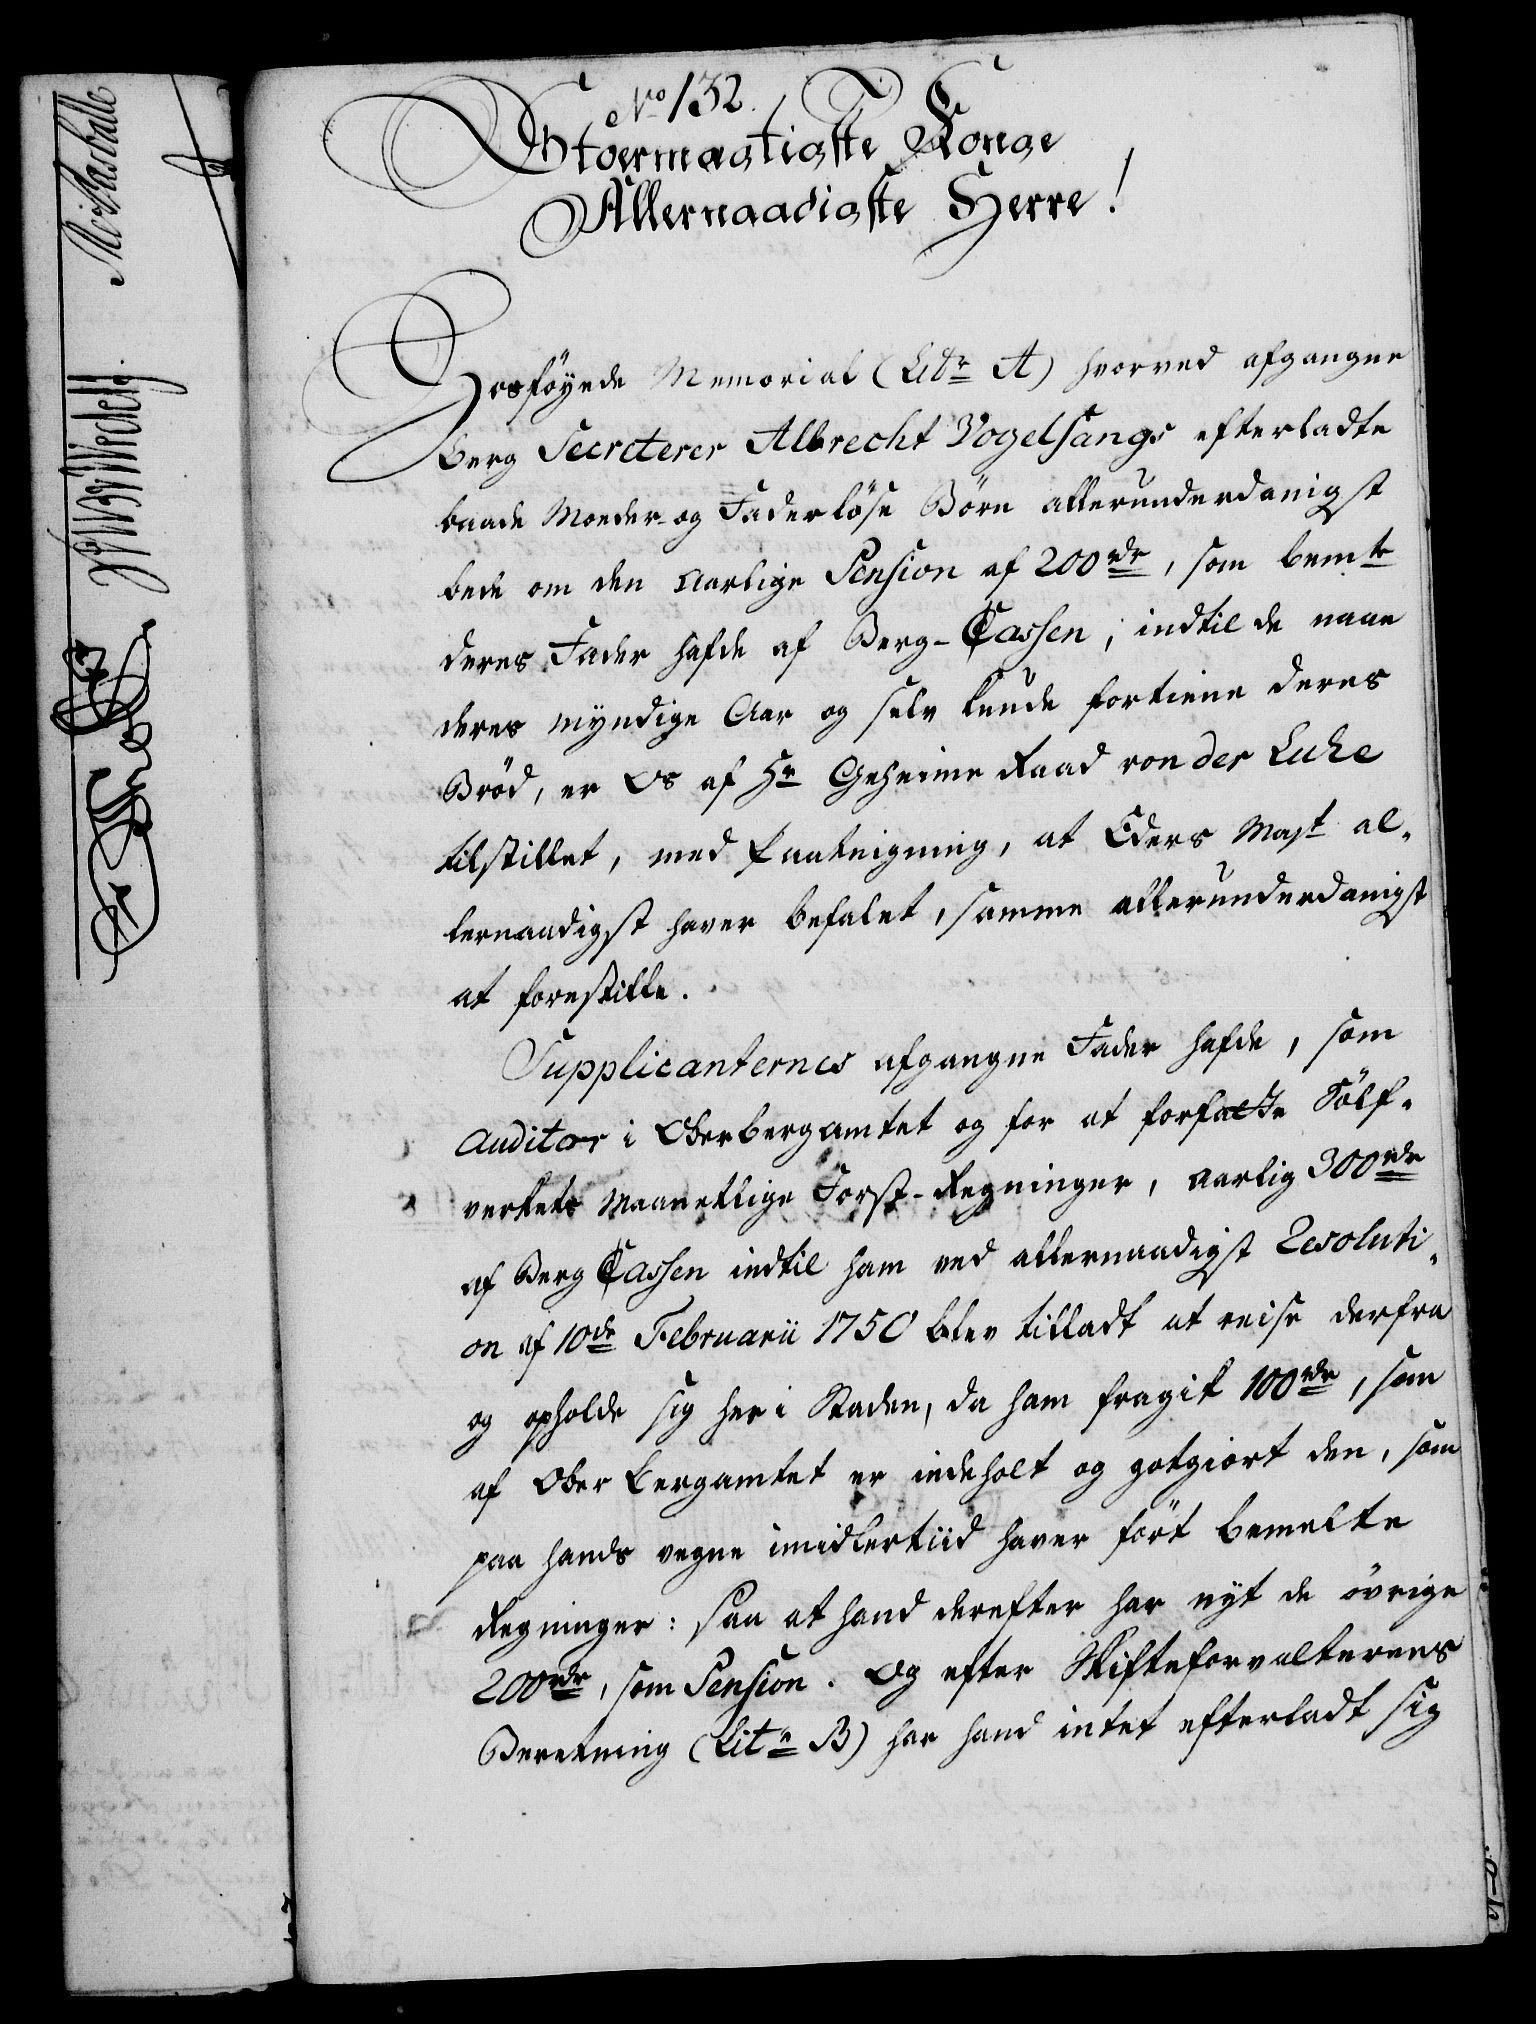 No 132.
Stoermægtigste Konge
Allernaadigste Herre!
Hosföyede Memorial (Litr A) hvorved afgangne
Berg Secreterer Albrecht Vogelsangs efterladte
baade Moeder- og Faderlöse Börn allerunderdanigst
bede om den Aarlige Pension af 200rdr, som bemte
deres Fader hafde af Berg-Cassen, indtil de naae
deres myndige Aar og selv kunde fortiene deres
Bröd, er Os af Hr Geheime Raad von der Luhe
tilstillet, med Paateigning, at Eders Mayt al-
lernaadigst haver befalet, samme allerunderdanigst
at forestille.
Supplicanternes afgangne Fader hafde, som
Auditor i Oberbergamtet og for at forfatte Sölf-
verkets Maanetlige Forst-Regninger, Aarlig 300rdr
af Berg Cassen indtil ham ved allernaadigst Resoluti-
on af 10de Februarii 1750 blev tilladt at reise derfra
og opholde sig her i Staden, da ham fragik 100rdr, som
af Ober Bergamtet er indeholt og gotgiort den, som
paa hands vegne imidlertiid haver fört bemelte
Regninger: saa at hand derefter har nyt de övrige
200rdr, som Pension. Og efter Skifteforvalterens
Beretning (Litr B) har hand intet efterladt sig